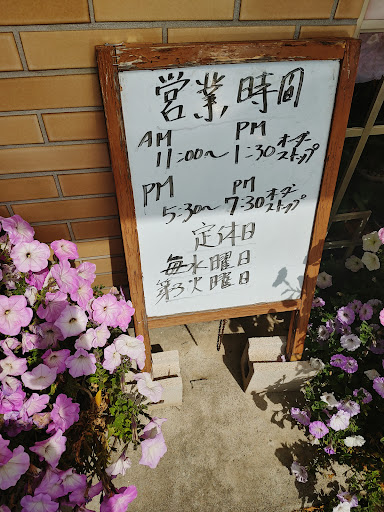 営業時間
AM PM
11:00～1:30オーダーストップ
PM PM
5:30～7:30オーダーストップ
定休日
毎水曜日
第3火曜日